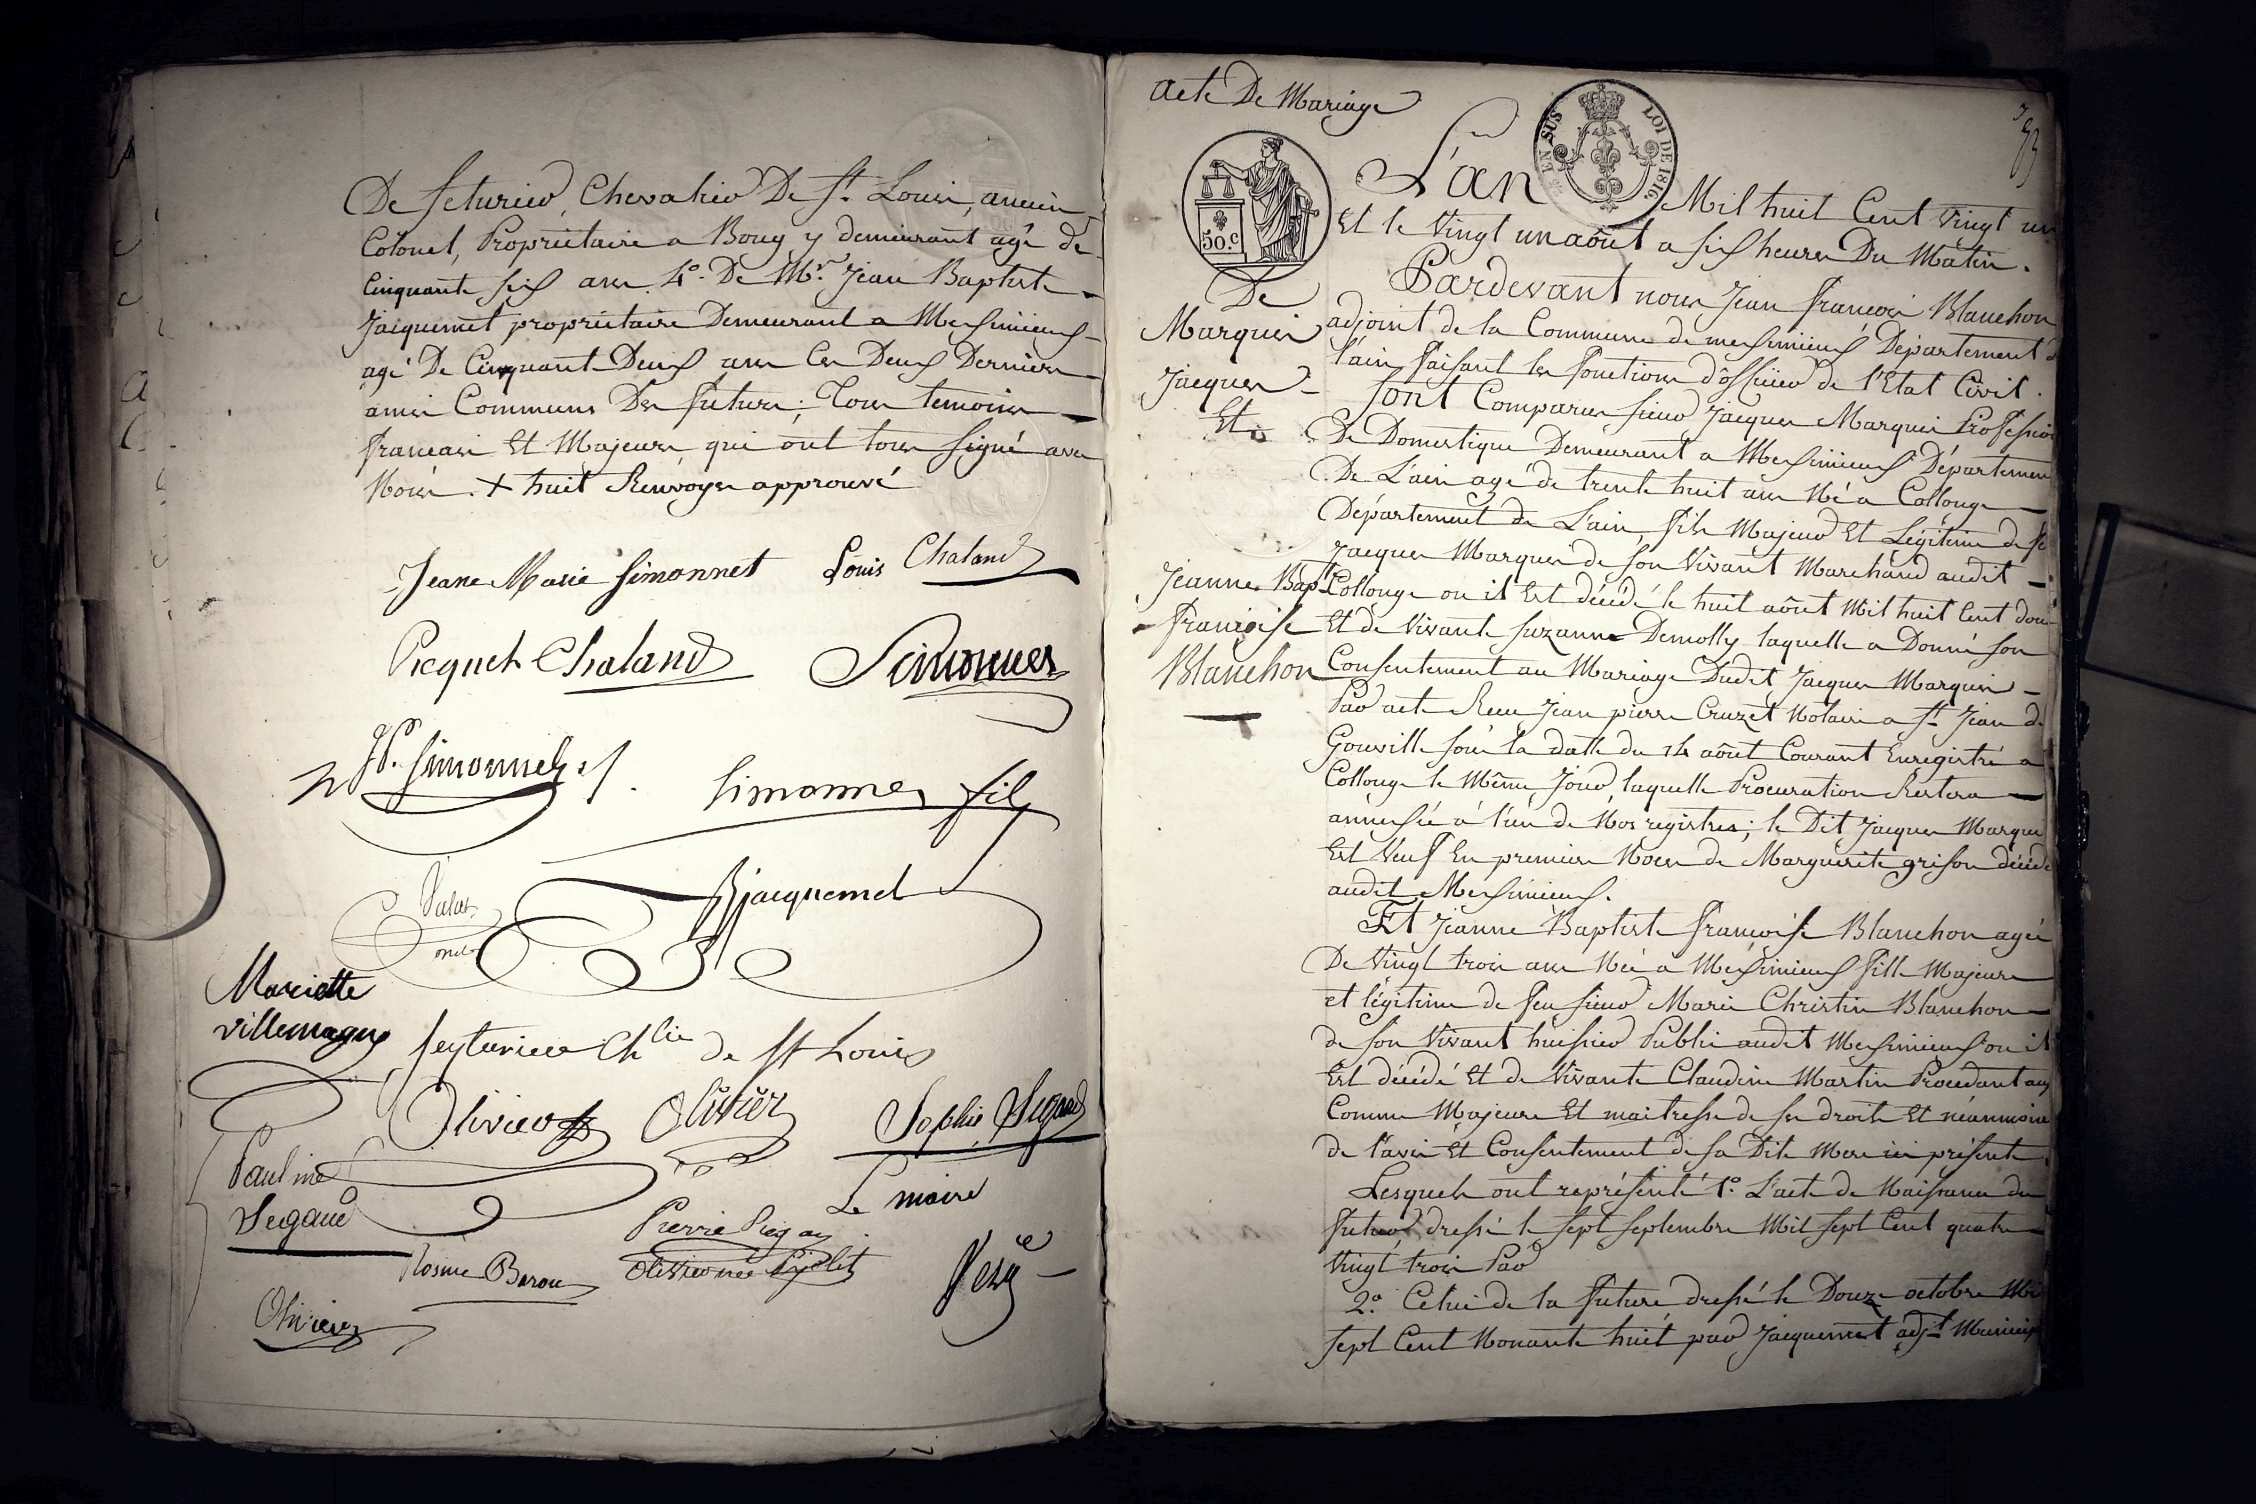 De Seturier, Chevalier De St. Louis, ancien
Colonel, Propriétaire a Bourg y demeurant agé de
Cinquante six ans. 4°. De Mr. Jean Baptiste
Jacquemet propriétaire Demeurant a Messimieux
agé De Cinquante Deux ans Ces Deux Derniers
amis Communs Des futurs; Tous temoins
francais Et Majeurs qui ont tous signé avec
Nous. + huit Renvoyes approuvé
Jeane Marie Simonnet Louis Chaland
Picquet Chaland Simonnet
Simonnet
Simonnet fils
Bjacquemet
Mariette
villemagne
Seyturier Chlier de St Louis
Olivier Olivier Sophie Segaud
Pauline
Segaud
Le maire
Pierre
Rosine
Olivier
acte De Mariage
EN SUS LOI DE 1816
50.c
De
Marquis
Jacques
Et
Jeanne Bapt
françoise
Blanchon
L'an Mil huit Cent vingt un
Et le Vingt un aôut a six heures Du Matin.
Pardevant nous Jean françois Blanchon
adjoint de la Commune de messimieux Département
l'ain faisant les fonctions d'officier de l'Etat Civil.
Sont Comparus sieur Jacques Marquis Profession
De Domestique Demeurant a Messimieux Departemen
De L'ain agé de trente huit ans Né a Collonge
Département de L'ain, fils Majeur Et Légitime de
Jacques Marques de son Vivant Marchand audit
Collonge ou il Est décédé le huit aôut Mil huit Cent
Et de Vivante Suzanne Demolly laquelle a Donné son
Consentement au Mariage Dudit Jacques Marquis
Par acte Recu Jean pierre Cruzet Notaire a St. Jean de
Gouville sous la datte du 14 aôut Courant Enregistré a
Collonge le Même Jour, laquelle Procuration Restera
annexée à l'un de Nos registres; le Dit Jacques Marqui
Est Veuf En premieres Noces de Marguerite grison décédé
audit Messimieux.
Et Jeanne Baptiste françoise Blanchon agée
De Vingt trois ans Née a Messimieux fille Majeure
et légitime de feu sieur Marie Christin Blanchon
de son Vivant huissier Public audit Messimieux ou il
Est décédé Et de Vivante Claudine Martin Procédant
Comme Majeure Et maitresse de ses droits Et néanmoins
de l'avis Et Consentement de sa Dite Mere ici présente
Lesquels ont représenté 1°. L'acte de Naissance du
futur, dressé le sept Septembre Mil sept Cent quatre
Vingt trois Par
2°. Celui de la future, dressé le Douze octobre Mil
sept Cent Nonante huit par Jacquemet adjt. Municip